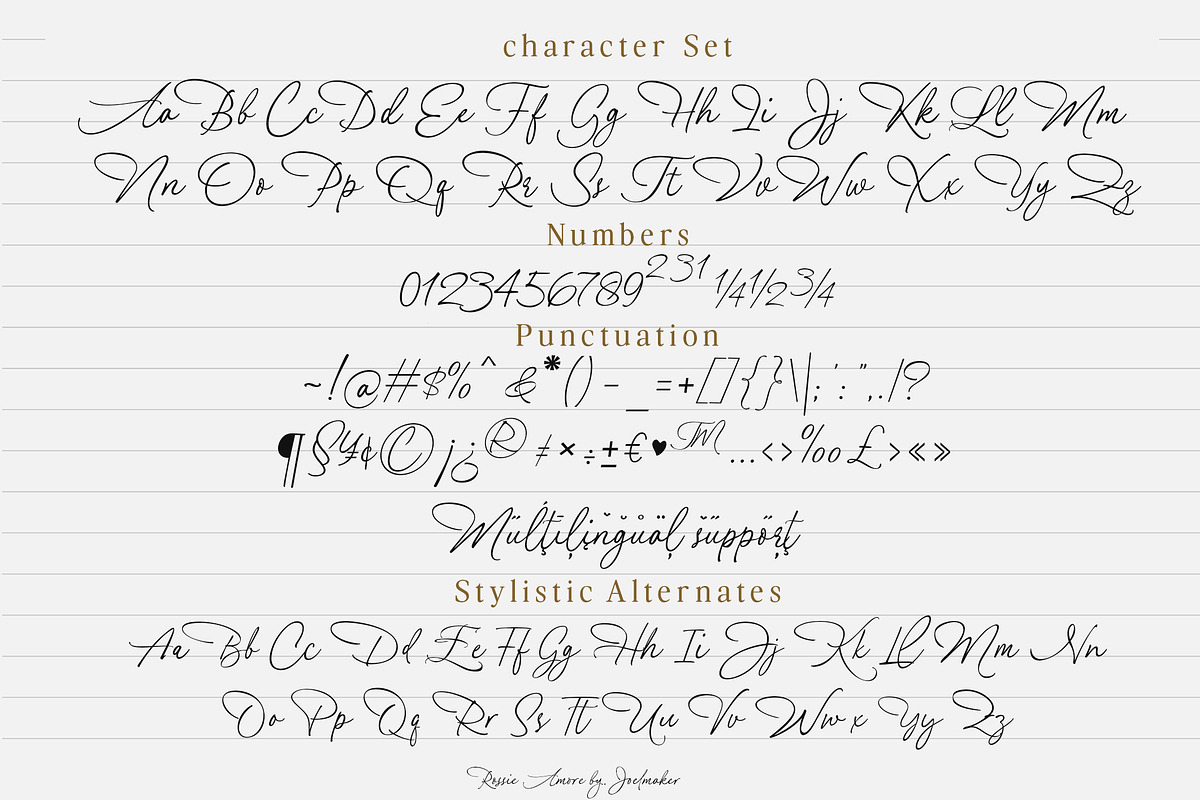 character Set
Aa Bb Cc Dd Ee Ff Gg Hh Ii Jj Kk Ll Mm
Nn Oo Pp Qq Rr Ss Tt Vv Ww Xx Yy Zz
Numbers
0123456789²³¹ ¼½¾
Punctuation
~!@#$%^&*() - _ =+[]{}\|; ' : " , . / ?
¶§¥¢©¡¿®≠×÷±€♥™…<>‰£›«»
Müļţīļįņğůäļ šüppöŗţ
Stylistic Alternates
Aa Bb Cc Dd Ee Ff Gg Hh Ii Jj Kk Ll Mm Nn
Oo Pp Qq Rr Ss Tt Uu Vv Ww x Yy Zz
Rossie Amore by.. Joelmaker